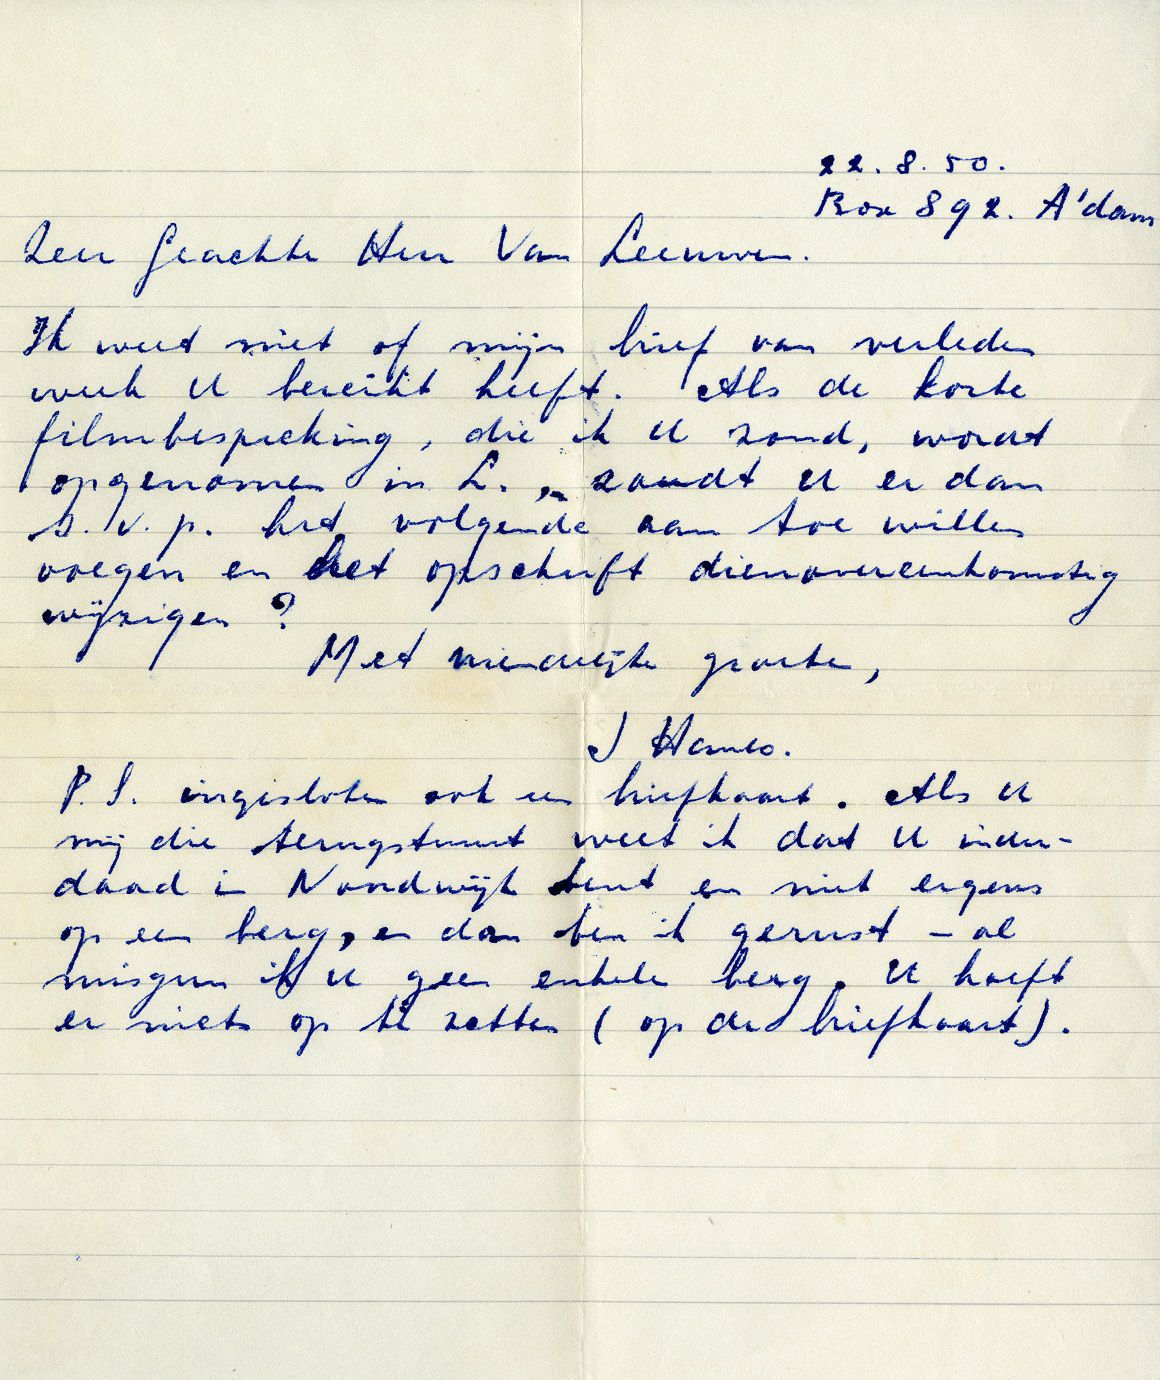 22.8.50.
Box 892. A'dam
Zeer Geachte Heer Van Leeuwen.
Ik weet niet of mijn brief van verleden
week U bereikt heeft. Als de korte
filmbespreking, die ik U zond, wordt
opgenomen in L., zoudt U er dan
s.v.p. het volgende aan toe willen
voegen en het opschrift dienovereenkomstig
wijzigen?
Met vriendelijke groeten,
J
P.S. ingesloten ook een briefkaart. Als U
mij die terugstuurt weet ik dat U inder-
daad in Noordwijk bent en niet ergens
op een berg, en dan ben ik gerust – al
misgun ik U geen enkele berg. U hoeft
er niets op te zetten (op de briefkaart).